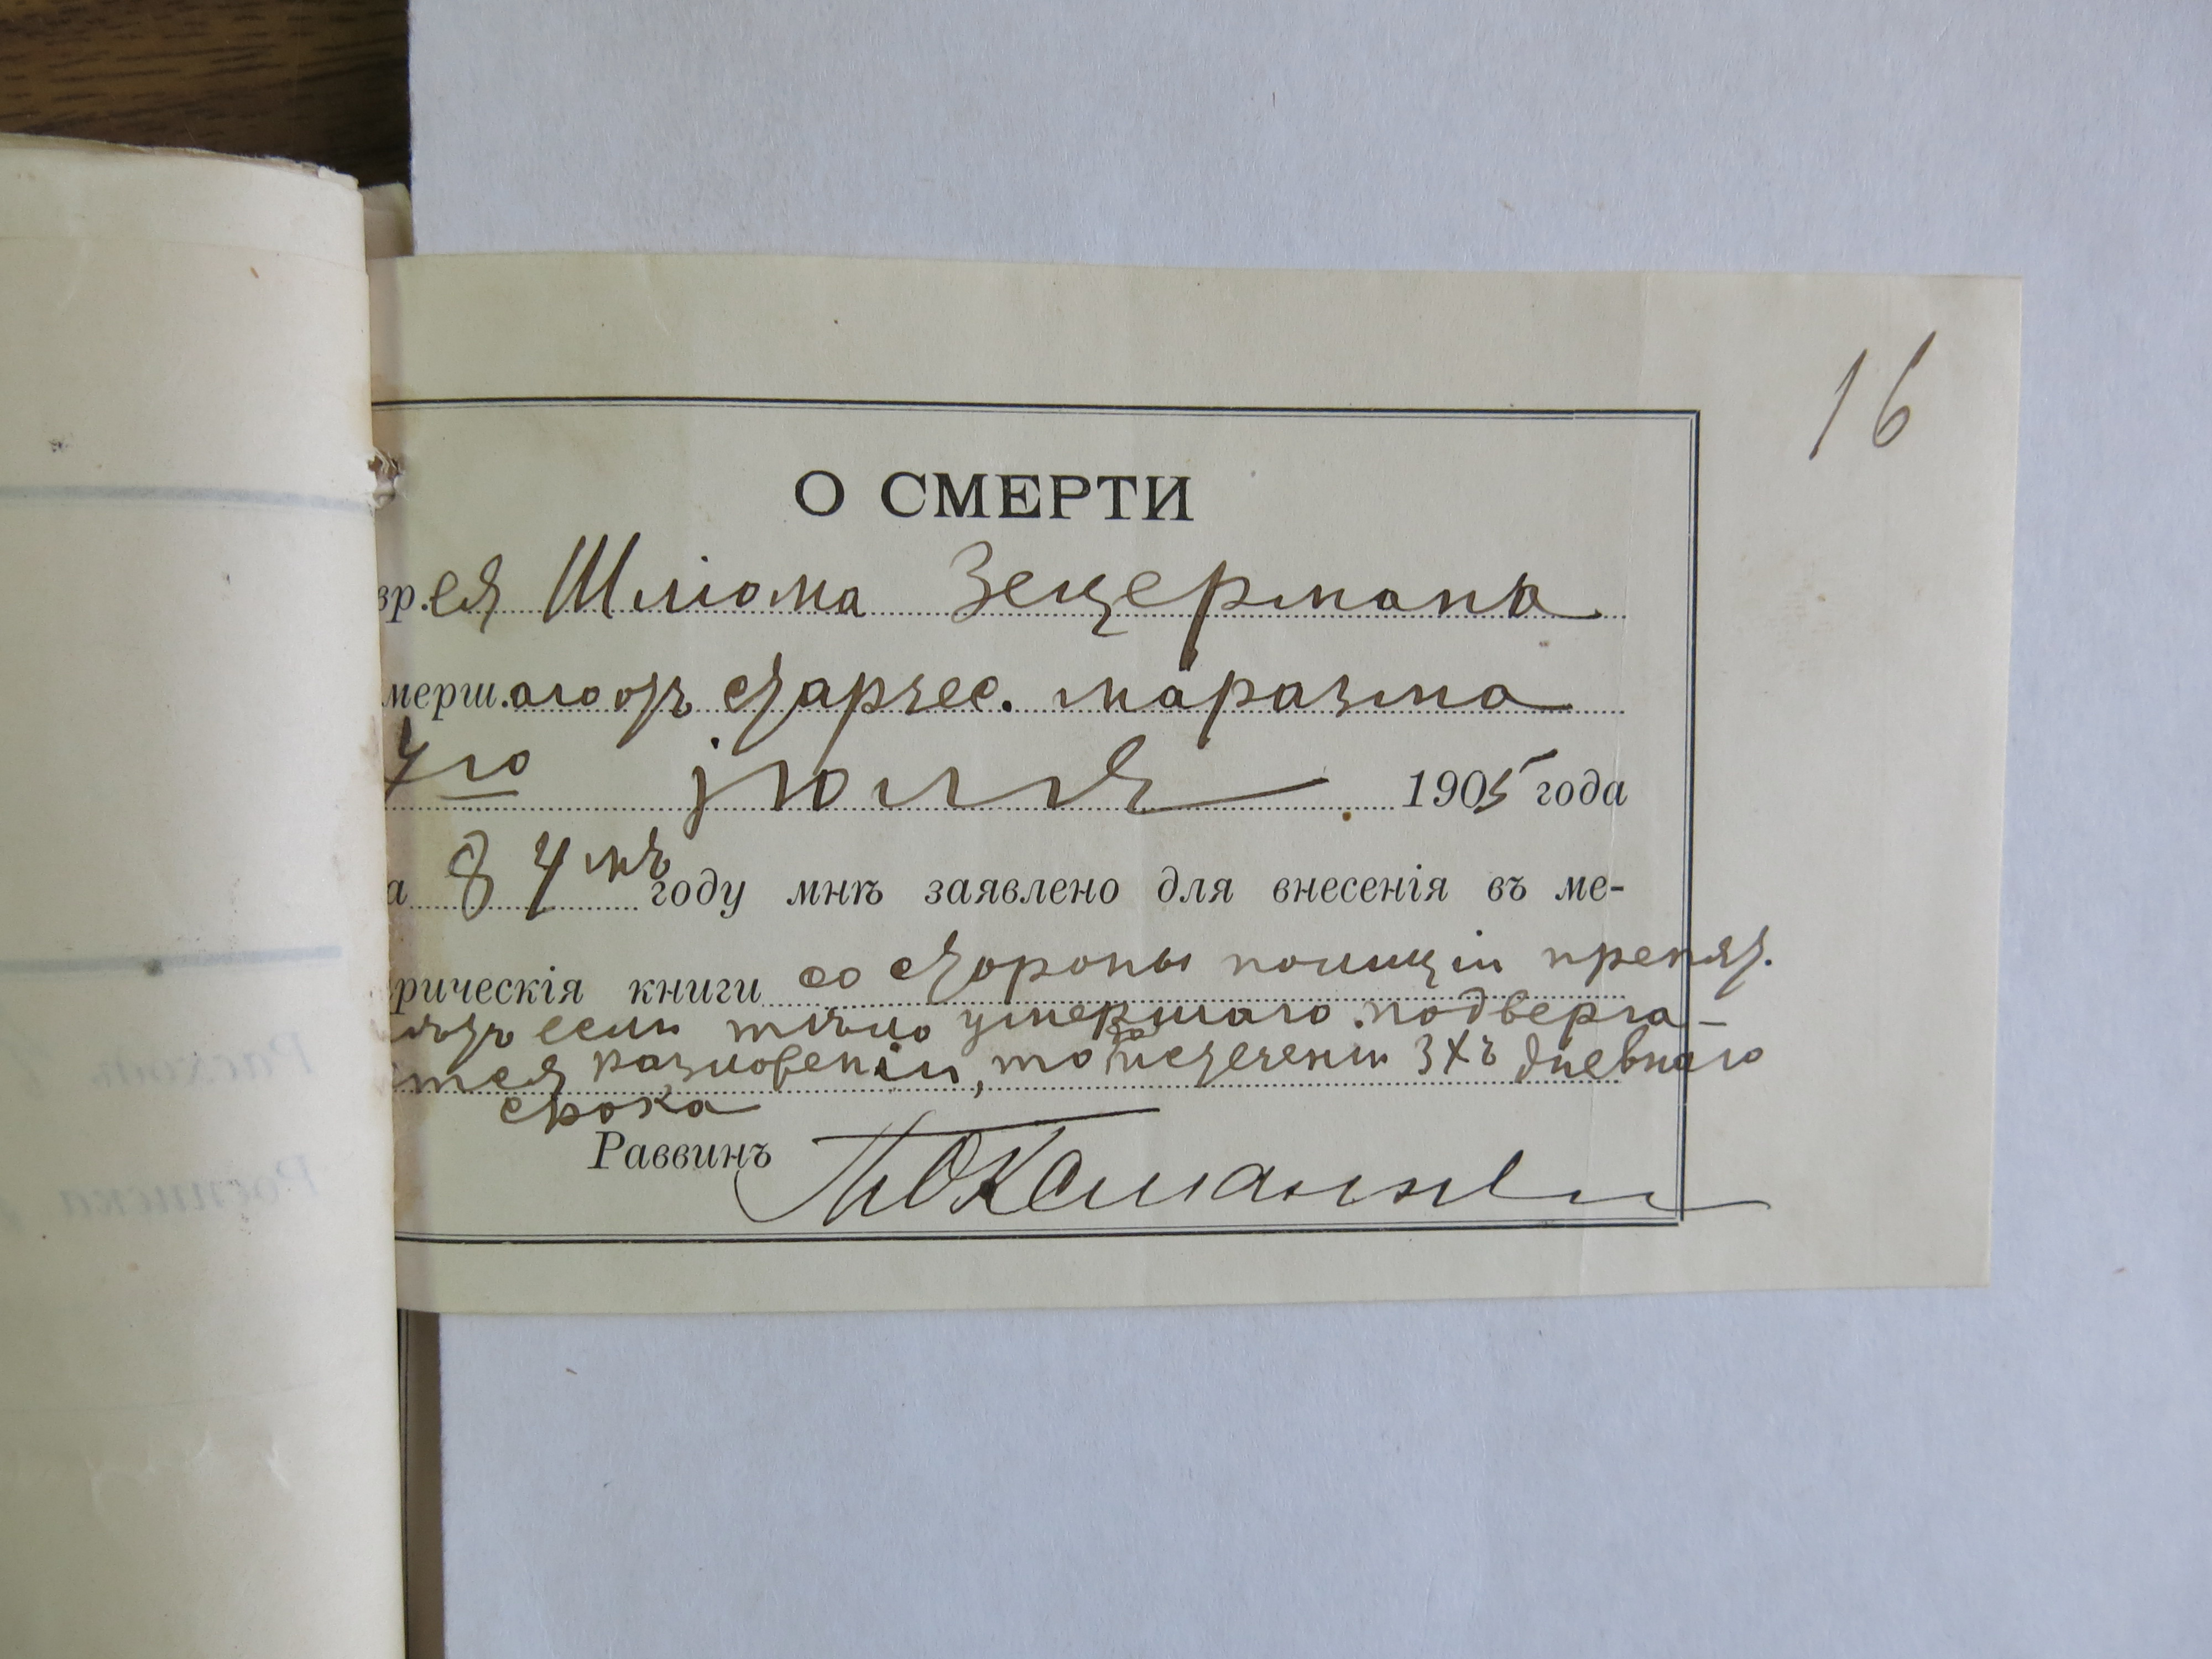 16
О СМЕРТИ
вр.ея Шліома Зецермана
мерш.аго отъ старчес. маразма
4го іюля 1905 года
а 84мъ году мнѣ заявлено для внесенія въ ме-
рическія книги со стороны полиціи препят.
если тѣло умершаго подверга-
ется разложенію, то до истеченія 3хъ дневнаго
срока
Раввинъ